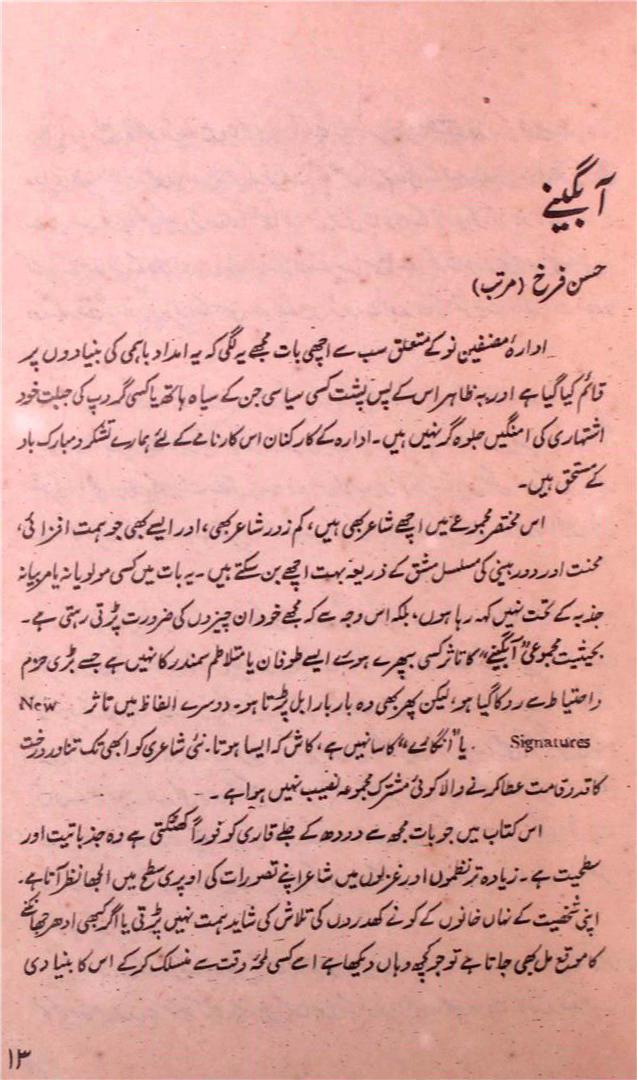 آبگینے
حسن فرخ (مرتب)
ادارۂ مصنفین نو کے متعلق سب سے اچھی بات مجھے یہ لگی کہ یہ امداد باہمی کی بنیادوں پر
قائم کیا گیا ہے اور بہ ظاہر اس کے پس پشت کسی سیاسی جن کے سیاہ ہاتھ یا کسی گروپ کی جبلت خود
اشتہاری کی امنگیں جلوہ گر نہیں ہیں۔ ادارہ کے کارکنان اس کارنامے کے لئے ہمارے تشکر و مبارک باد
کے مستحق ہیں۔
اس مختصر مجموعے میں اچھے شاعر بھی ہیں، کم زور شاعر بھی، اور ایسے بھی جو ہمت افزائی،
محنت اور دور بینی کی مسلسل مشق کے ذریعہ بہت اچھے بن سکتے ہیں۔ یہ بات میں کسی مولویانہ یا مربیانہ
جذبہ کے تحت نہیں کہہ رہا ہوں، بلکہ اس وجہ سے کہ مجھے خود ان چیزوں کی ضرورت پڑتی رہتی ہے۔
بحیثیت مجموعی "آبگینے" کا تاثر کسی بپھرے ہوئے ایسے طوفان یا متلاطم سمندر کا نہیں ہے جسے بڑی حزم
و احتیاط سے روکا گیا ہو، لیکن پھر بھی وہ بار بار ابل پڑتا ہو۔ دوسرے الفاظ میں تاثر New
Signatures یا "انگارے" کا سا نہیں ہے، کاش کہ ایسا ہوتا۔ نئی شاعری کو ابھی تک تناور درخت
کا قد و قامت عطا کرنے والا کوئی مشترک مجموعہ نصیب نہیں ہوا ہے۔
اس کتاب میں جو بات مجھ سے دودھ کے جلے قاری کو فوراً کھٹکتی ہے وہ جذباتیت اور
سطحیت ہے۔ زیادہ تر نظموں اور غزلوں میں شاعر اپنے تصورات کی اوپری سطح میں الجھا نظر آتا ہے۔
اپنی شخصیت کے نہاں خانوں کے کونے کھدروں کی تلاش کی شاید ہمت نہیں پڑتی یا اگر کبھی ادھر جھانکنے
کا موقع مل بھی جاتا ہے تو جو کچھ وہاں دیکھا ہے اسے کسی لمحۂ وقت سے منسلک کر کے اس کا بنیادی
۱۳